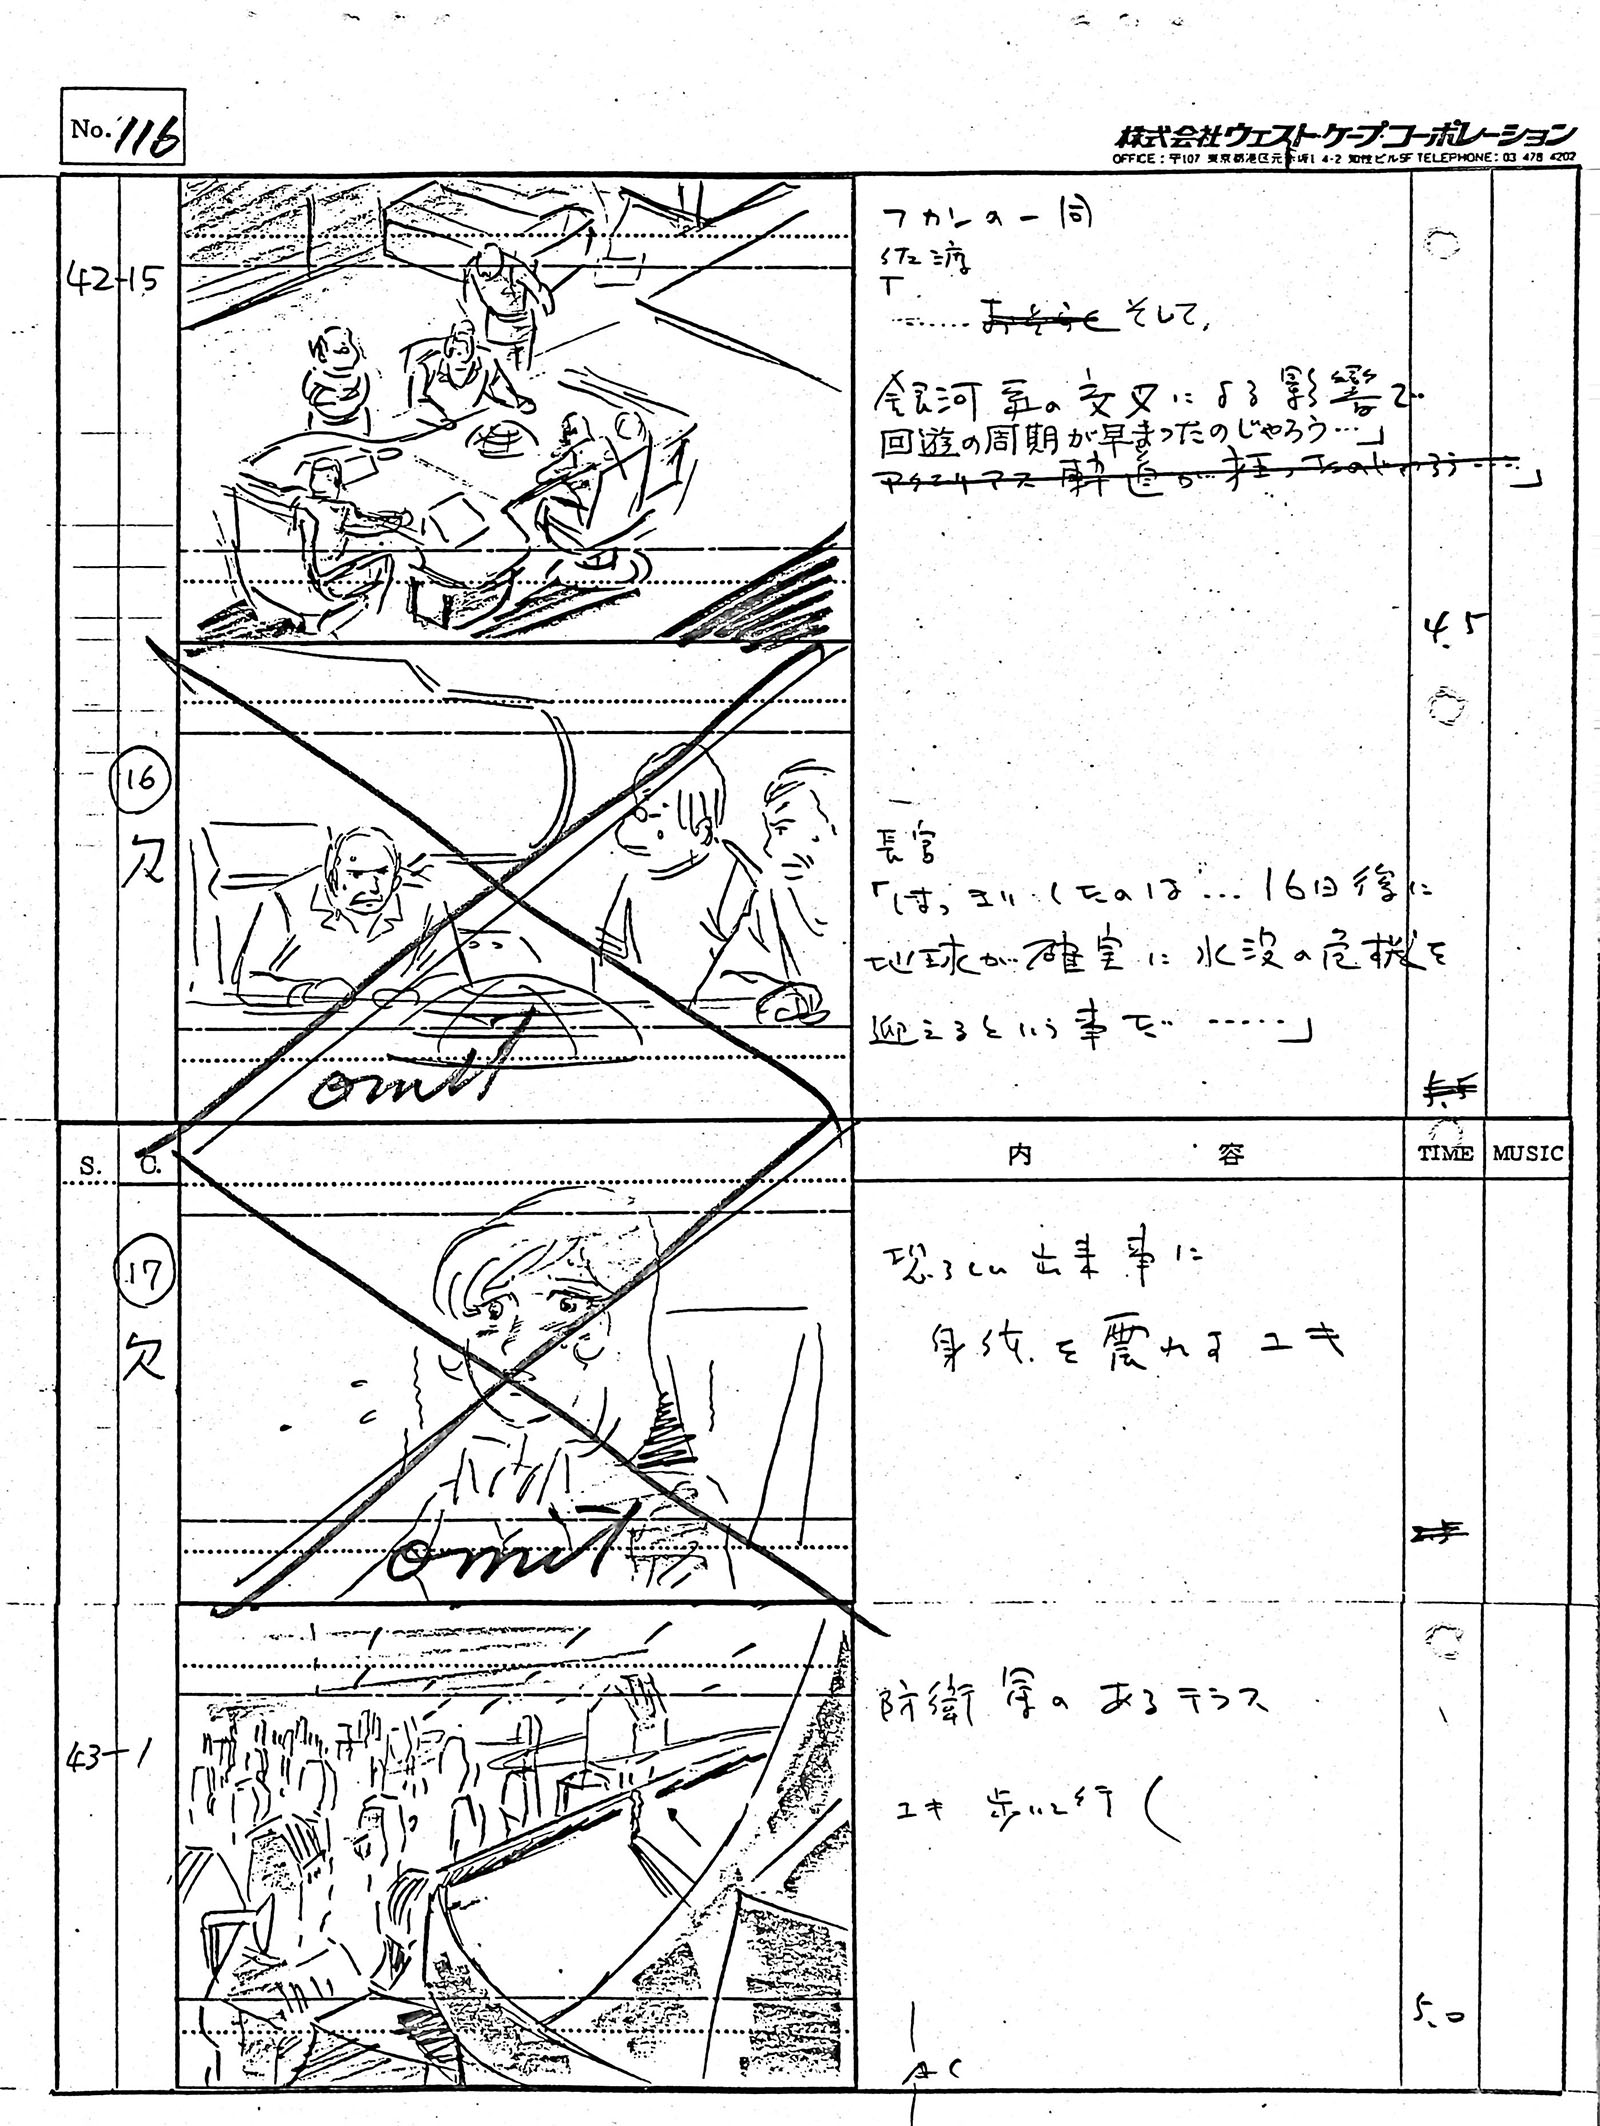 No. 116
株式会社ウェスト・ケープ・コーポレーション
OFFICE:〒107 東京都港区元赤坂1 4-2 知性ビル5F TELEPHONE: 03 478 4202
42-15
フカンの一同
佐渡
「
……おそらくそして、
銀河系の交叉による影響で
回遊の周期が早まったのじゃろう…」
アクエリアス軌道が狂ったのじゃろう……」
4.5
16
欠
長官
「はっきりしたのは…16日後に
地球が確実に水没の危機を
迎えるという事だ……」
omit
5.5
S.
C.
内容
TIME
MUSIC
17
欠
恐ろしい出来事に
身体を震わすユキ
omit
2.5
43-1
防衛軍のあるテラス
ユキ 歩いて行く
5.0
AC